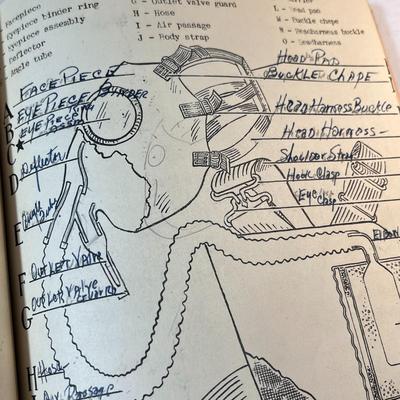 Facepiece
Eyepiece binder ring
Eyepiece assembly
Deflector
Angle tube
G - Outlet valve guard
H - Hose
I - Air passage
J - Body strap
L - Head pad
M - Buckle chape
N - Headharness buckle
O - Headharness
A FACE PIECE
B EYE PIECE BINDER
RING
C EYE PIECE
D Deflector
E
F OUTLET VALVE
G OUTLET VALVE
GUARD
H Hose
I Air Passage
HEAD PAD
BUCKLE CHAPE
Head Harness Buckle
Head Harness
Shoulder Strap
Hook Clasp
Eye Clasp